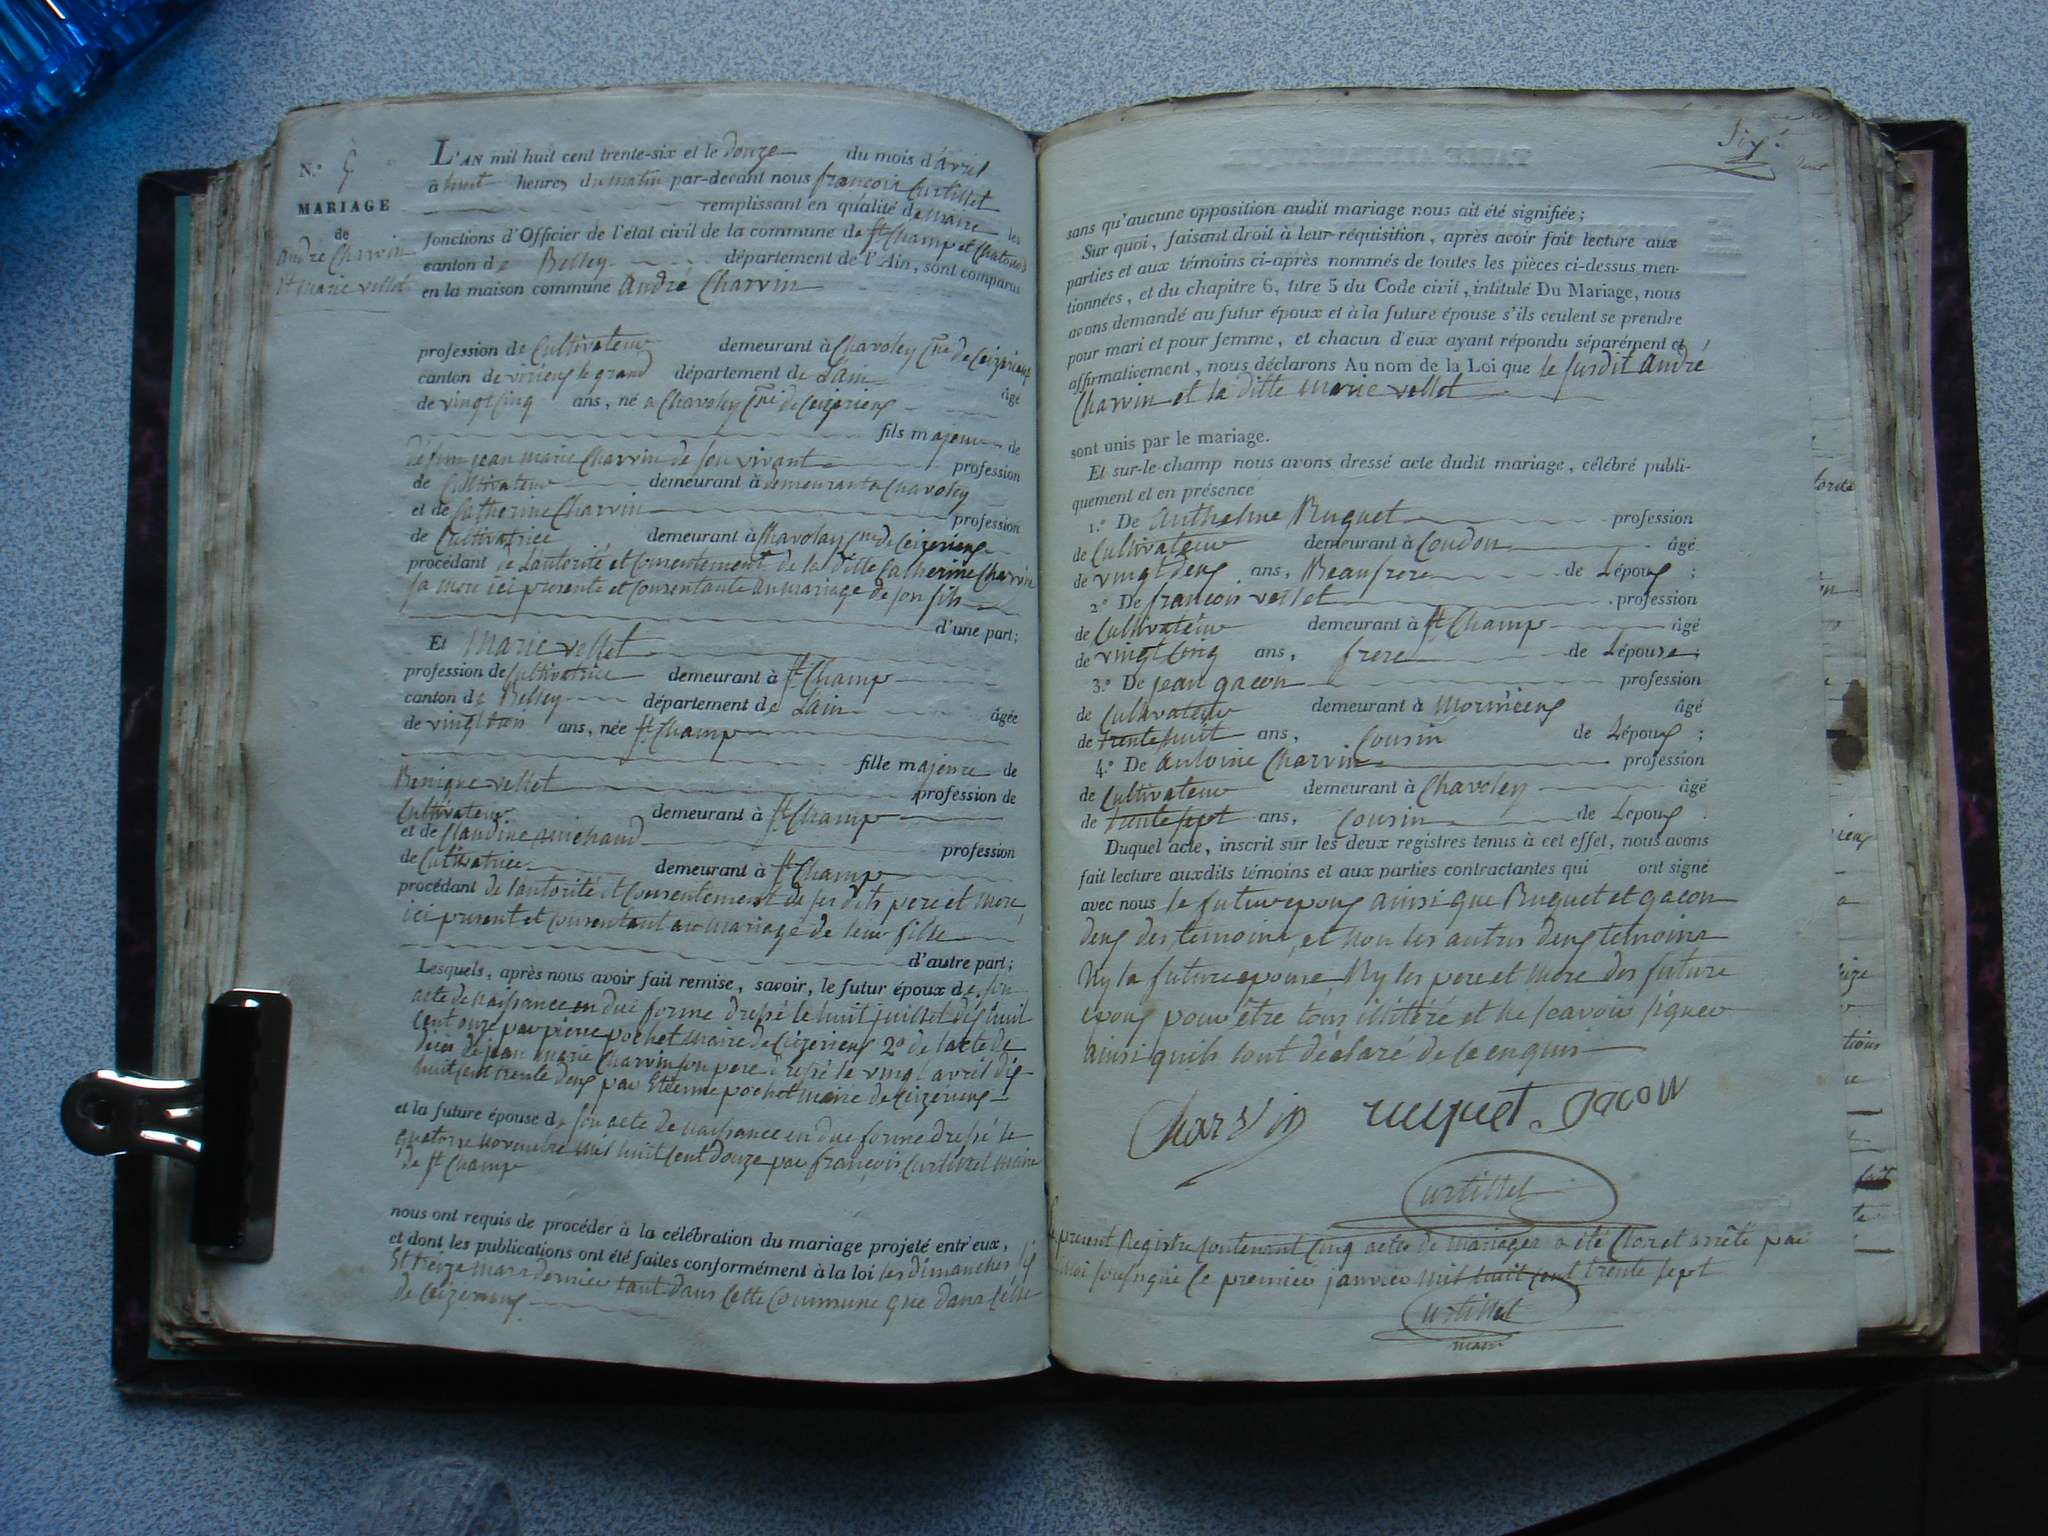 N.° 5
MARIAGE
de
André Charvin
et Marie vellet
L'AN mil huit cent trente-six et le douze du mois d'avril
à huit heures du matin par-devant nous françois Curtillet
remplissant en qualité de maire les
fonctions d'Officier de l'état civil de la commune de St Champ et Chatonod
canton de Belley département de l'Ain, sont comparus
en la maison commune André Charvin
profession de Cultivateur demeurant à Chavoley Cne de Ceizerieux
canton de virieux le grand département de Lain âgé
de vingt Cinq ans, né a Chavoley Cne de Ceizerieux
fils majeur de
défun jean marie Charvin de son vivant profession
de Cultivateur demeurant à demeurant a Chavoley
et de Catherine Charvin profession
de Cultivatrice demeurant à Chavoley Cne de Ceizerieux
procédant de Lautorité et Consentement de la ditte Catherine Charvin
sa mere ici presente et Consentante au mariage de son fils
d'une part;
Et Marie vellet
profession de Cultivatrice demeurant à St Champ
canton de Belley département de Lain âgée
de vingt trois ans, née St Champ
fille majeure de
Benique vellet profession de
Cultivateur demeurant à St Champ
et de Claudine michaud profession
de Cultivatrice demeurant à St Champ
procédant de lautorité et Consentement de ses dits pere et mere,
ici present et Consentant au mariage de leur fille
d'autre part;
Lesquels, après nous avoir fait remise, savoir, le futur époux de son
acte de naissance en due forme dressé le huit juillet dix huit
Cent onze par pierre pochet maire de Ceizerieux 2° de lacte de
deces de jean marie Charvin son pere dressé le vingt avril dix
huit Cent trente deux par Etienne pochet maire de Ceizerieux
et la future épouse de son acte de naissance en due forme dressé le
quatorze novembre mil huit Cent douze par françois Curtillet maire
de St Champ
nous ont requis de procéder à la célébration du mariage projeté entr'eux,
et dont les publications ont été faites conformément à la loi les dimanches six
Et treize mars dernier tant dans Cette Commune que dans Celle
de Ceizerieux
Six.
sans qu'aucune opposition audit mariage nous ait été signifiée;
Sur quoi, faisant droit à leur réquisition, après avoir fait lecture aux
parties et aux témoins ci-après nommés de toutes les pièces ci-dessus men-
tionnées, et du chapitre 6, titre 5 du Code civil, intitulé Du Mariage, nous
avons demandé au futur époux et à la future épouse s'ils veulent se prendre
pour mari et pour femme, et chacun d'eux ayant répondu séparément et
affirmativement, nous déclarons Au nom de la Loi que le susdit André
Charvin et la ditte marie vellet
sont unis par le mariage.
Et sur-le-champ nous avons dressé acte dudit mariage, célébré publi-
quement et en présence
1.° De Anthelme Ruquet profession
de Cultivateur demeurant à Coudon âgé
de vingt deux ans, Beaufrere de Lépoux;
2.° De françois vellet profession
de Cultivateur demeurant à St Champ âgé
de vingt Cinq ans, frere de Lépouse;
3.° De jean gacon profession
de Cultivateur demeurant à Mornieux âgé
de trente huit ans, Cousin de Lépoux;
4.° De antoine Charvin profession
de Cultivateur demeurant à Chavoley âgé
de trente sept ans, Cousin de Lepoux.
Duquel acte, inscrit sur les deux registres tenus à cet effet, nous avons
fait lecture auxdits témoins et aux parties contractantes qui ont signé
avec nous le futur epoux ainsi que Ruquet et gacon
deux des temoins, et non les autres deux temoins
Ny la future epouse Ny les pere et mere des future
epoux pour être tous illitéré et ne scavoir signer
ainsi quils lont déclaré de ce enquis
Charvin ruquet gacon
Curtillet
Le present Registre Contenant Cinq actes de mariages a été Clos et arrêté par
moi sousigné le premier janvier mil huit cent trente sept
Curtillet
maire